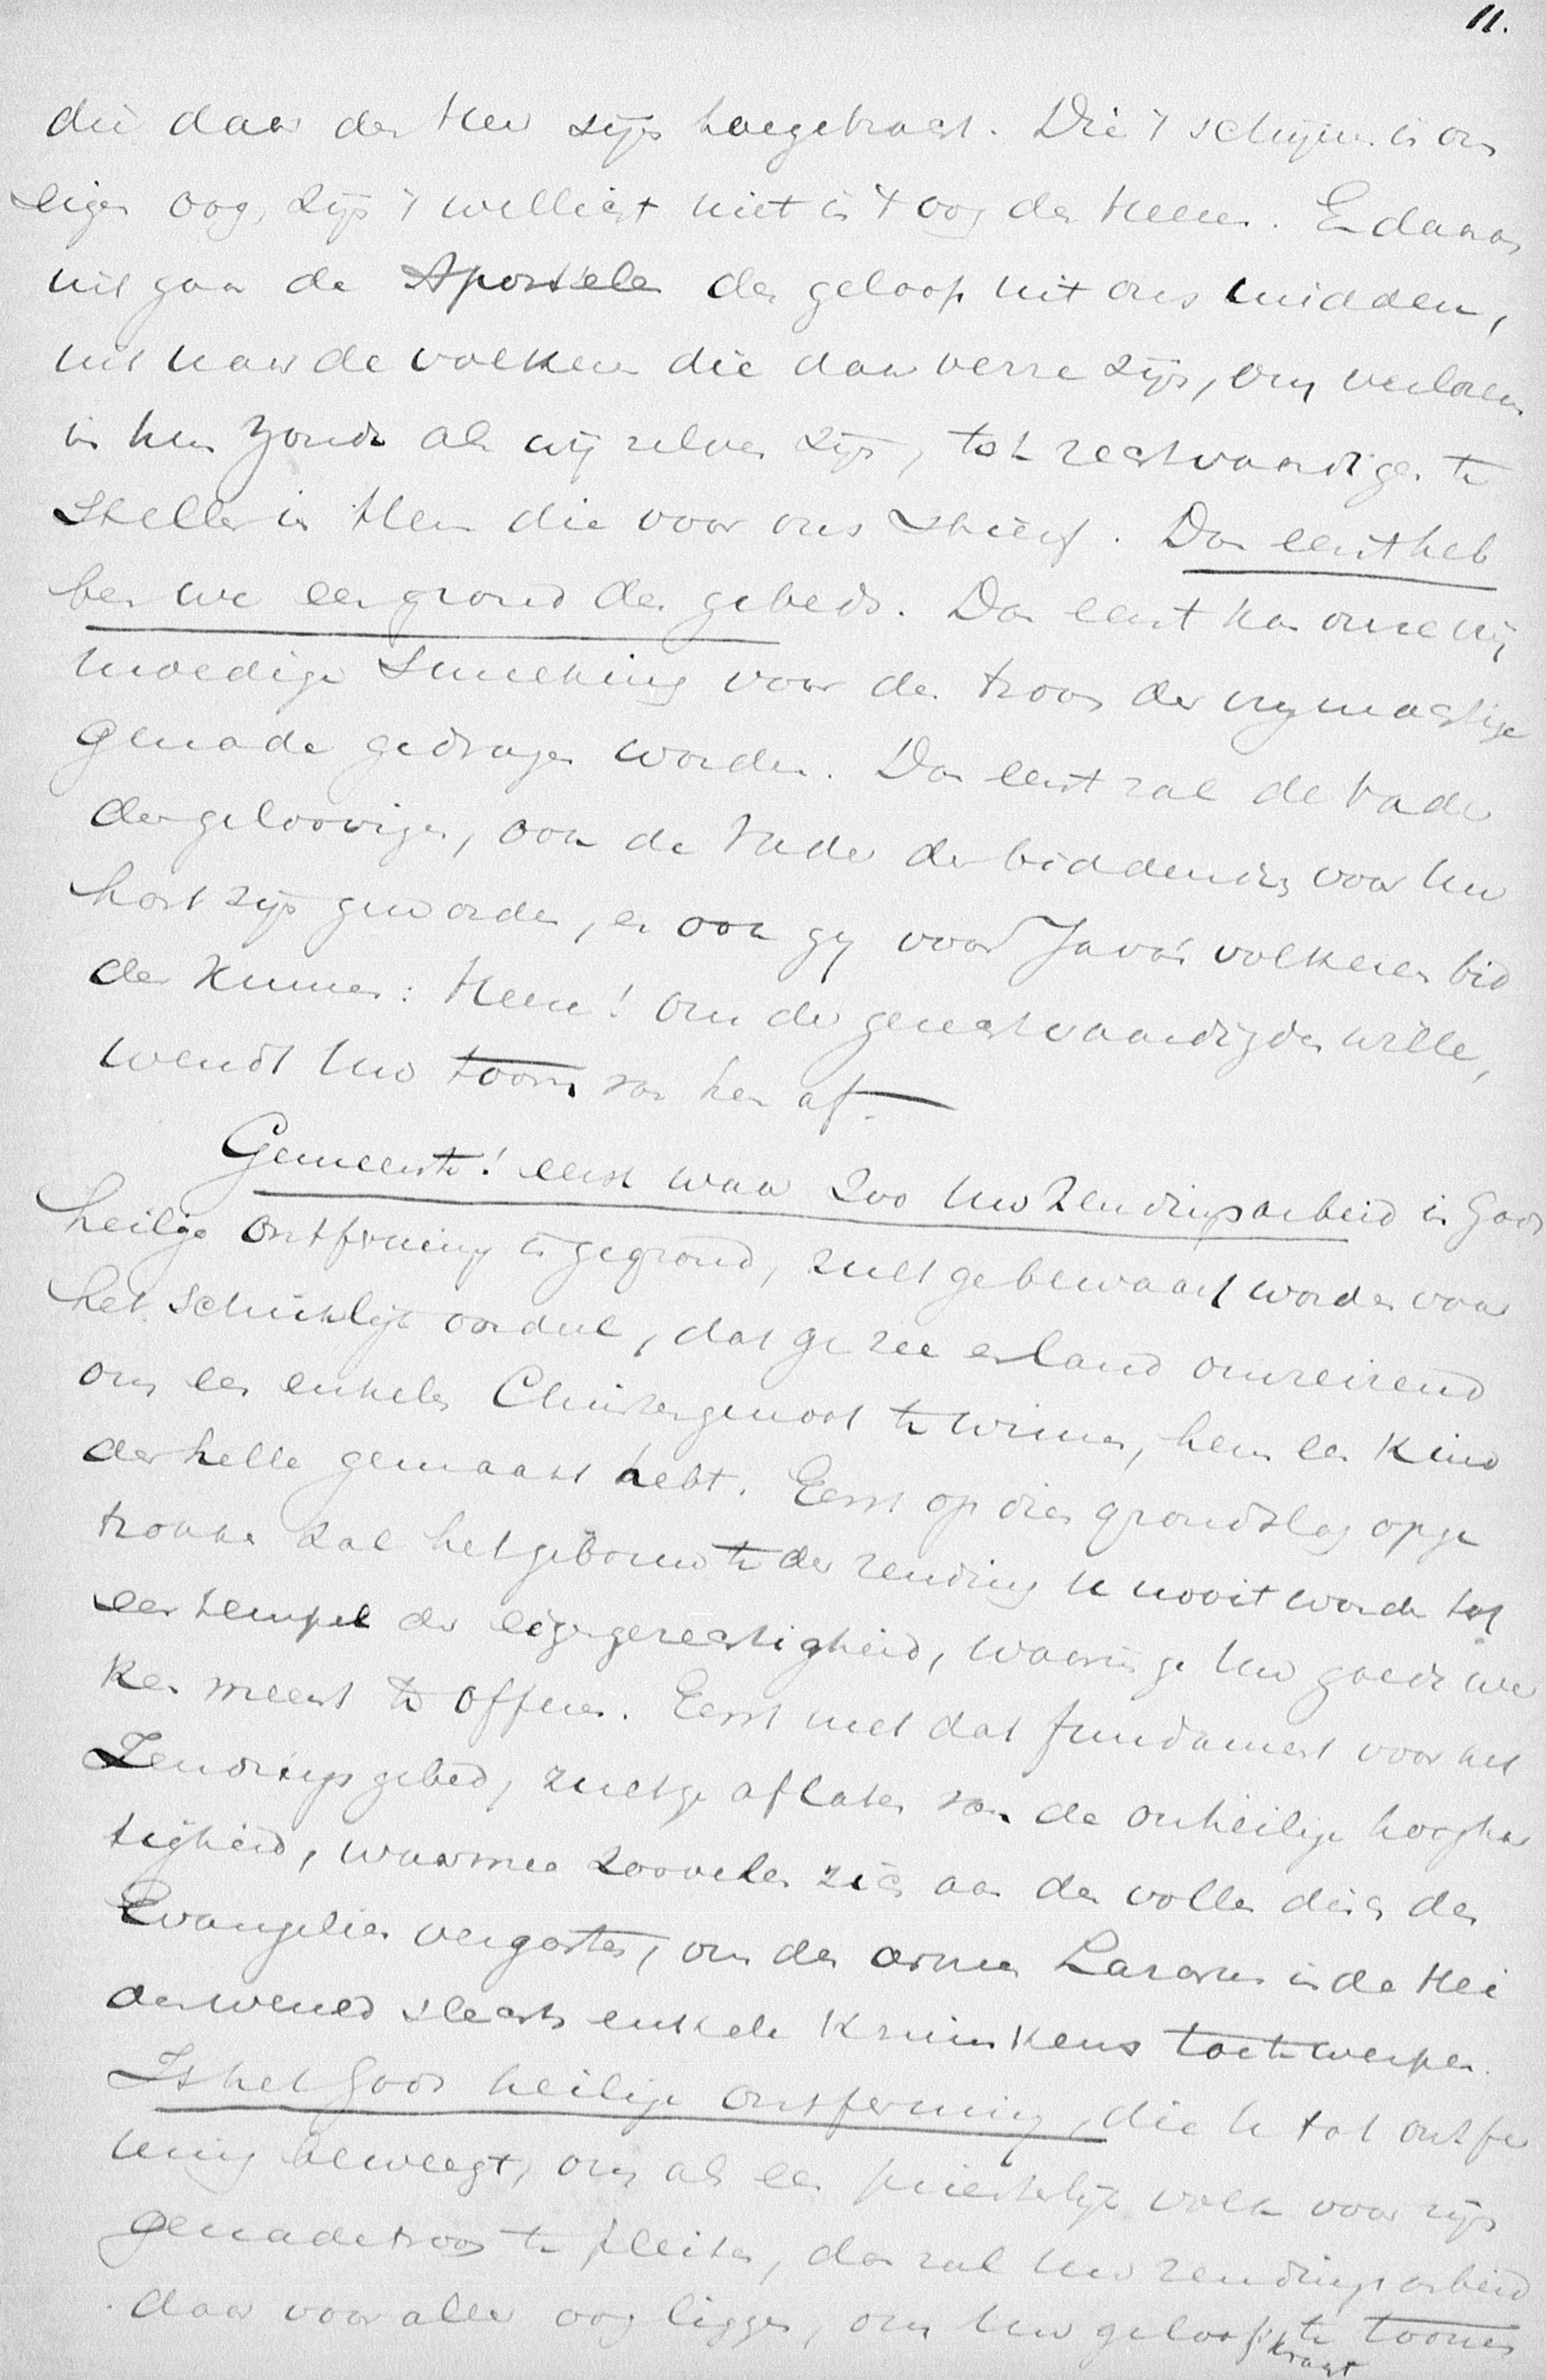 11.
die door den Heer zijn toegebracht. Die 't schijnen in ons
eigen oog, zijn 't wellicht niet in 't oog des Heeren. En daarom
uit gaan de Apostelen des geloofs uit ons midden,
uit naar de volken die daar verre zijn, om verloren
in hun zonde als wij zelven zijn, tot rechtvaardigen te
stellen in Hem die voor ons stierf. Dan eerst heb
ben we een grond des gebeds. Dan eerst kan onze vrij
moedige smeeking voor den troon der vrijmachtige
genade gedragen worden. Dan eerst zal de Vader
der geloovigen, ook de Vader der biddenden voor Uw
hart zijn geworden, en ook gij voor Java's volkeren bid
den kunnen: Heere! om der gerechtvaardigden wille,
wendt Uw toorn van hen af. —
Gemeente! eerst waar zoo Uw Zendingsarbeid in Gods
heilige ontferming is gegrond, zult ge bewaard worden voor
het schriklijk oordeel, dat ge zee en land omreizend
om een enkelen Christengenoot te winnen, hem een kind
der helle gemaakt hebt. Eerst op dien grondslag opge
trokken zal het gebouwte der zending U nooit worden tot
een tempel der eigengerechtigheid, waarin ge Uw goede wer
ken meent te offeren. Eerst met dat fundament voor het
Zendingsgebed, zult ge aflaten van de onheilige hooghar
tigheid, waarmee zoovelen zich aan den vollen disch des
Evangelies vergasten, om den armen Lazarus in de Hei
denwereld slechts enkele kruimkens toe te werpen.
Is het Gods heilige ontferming, die U tot ontfer
ming beweegt, om als een priesterlijk volk voor zijn
genadetroon te pleiten, dan zal Uw zendingsarbeid
daar voor aller oog liggen, om Uw geloofskracht te toonen